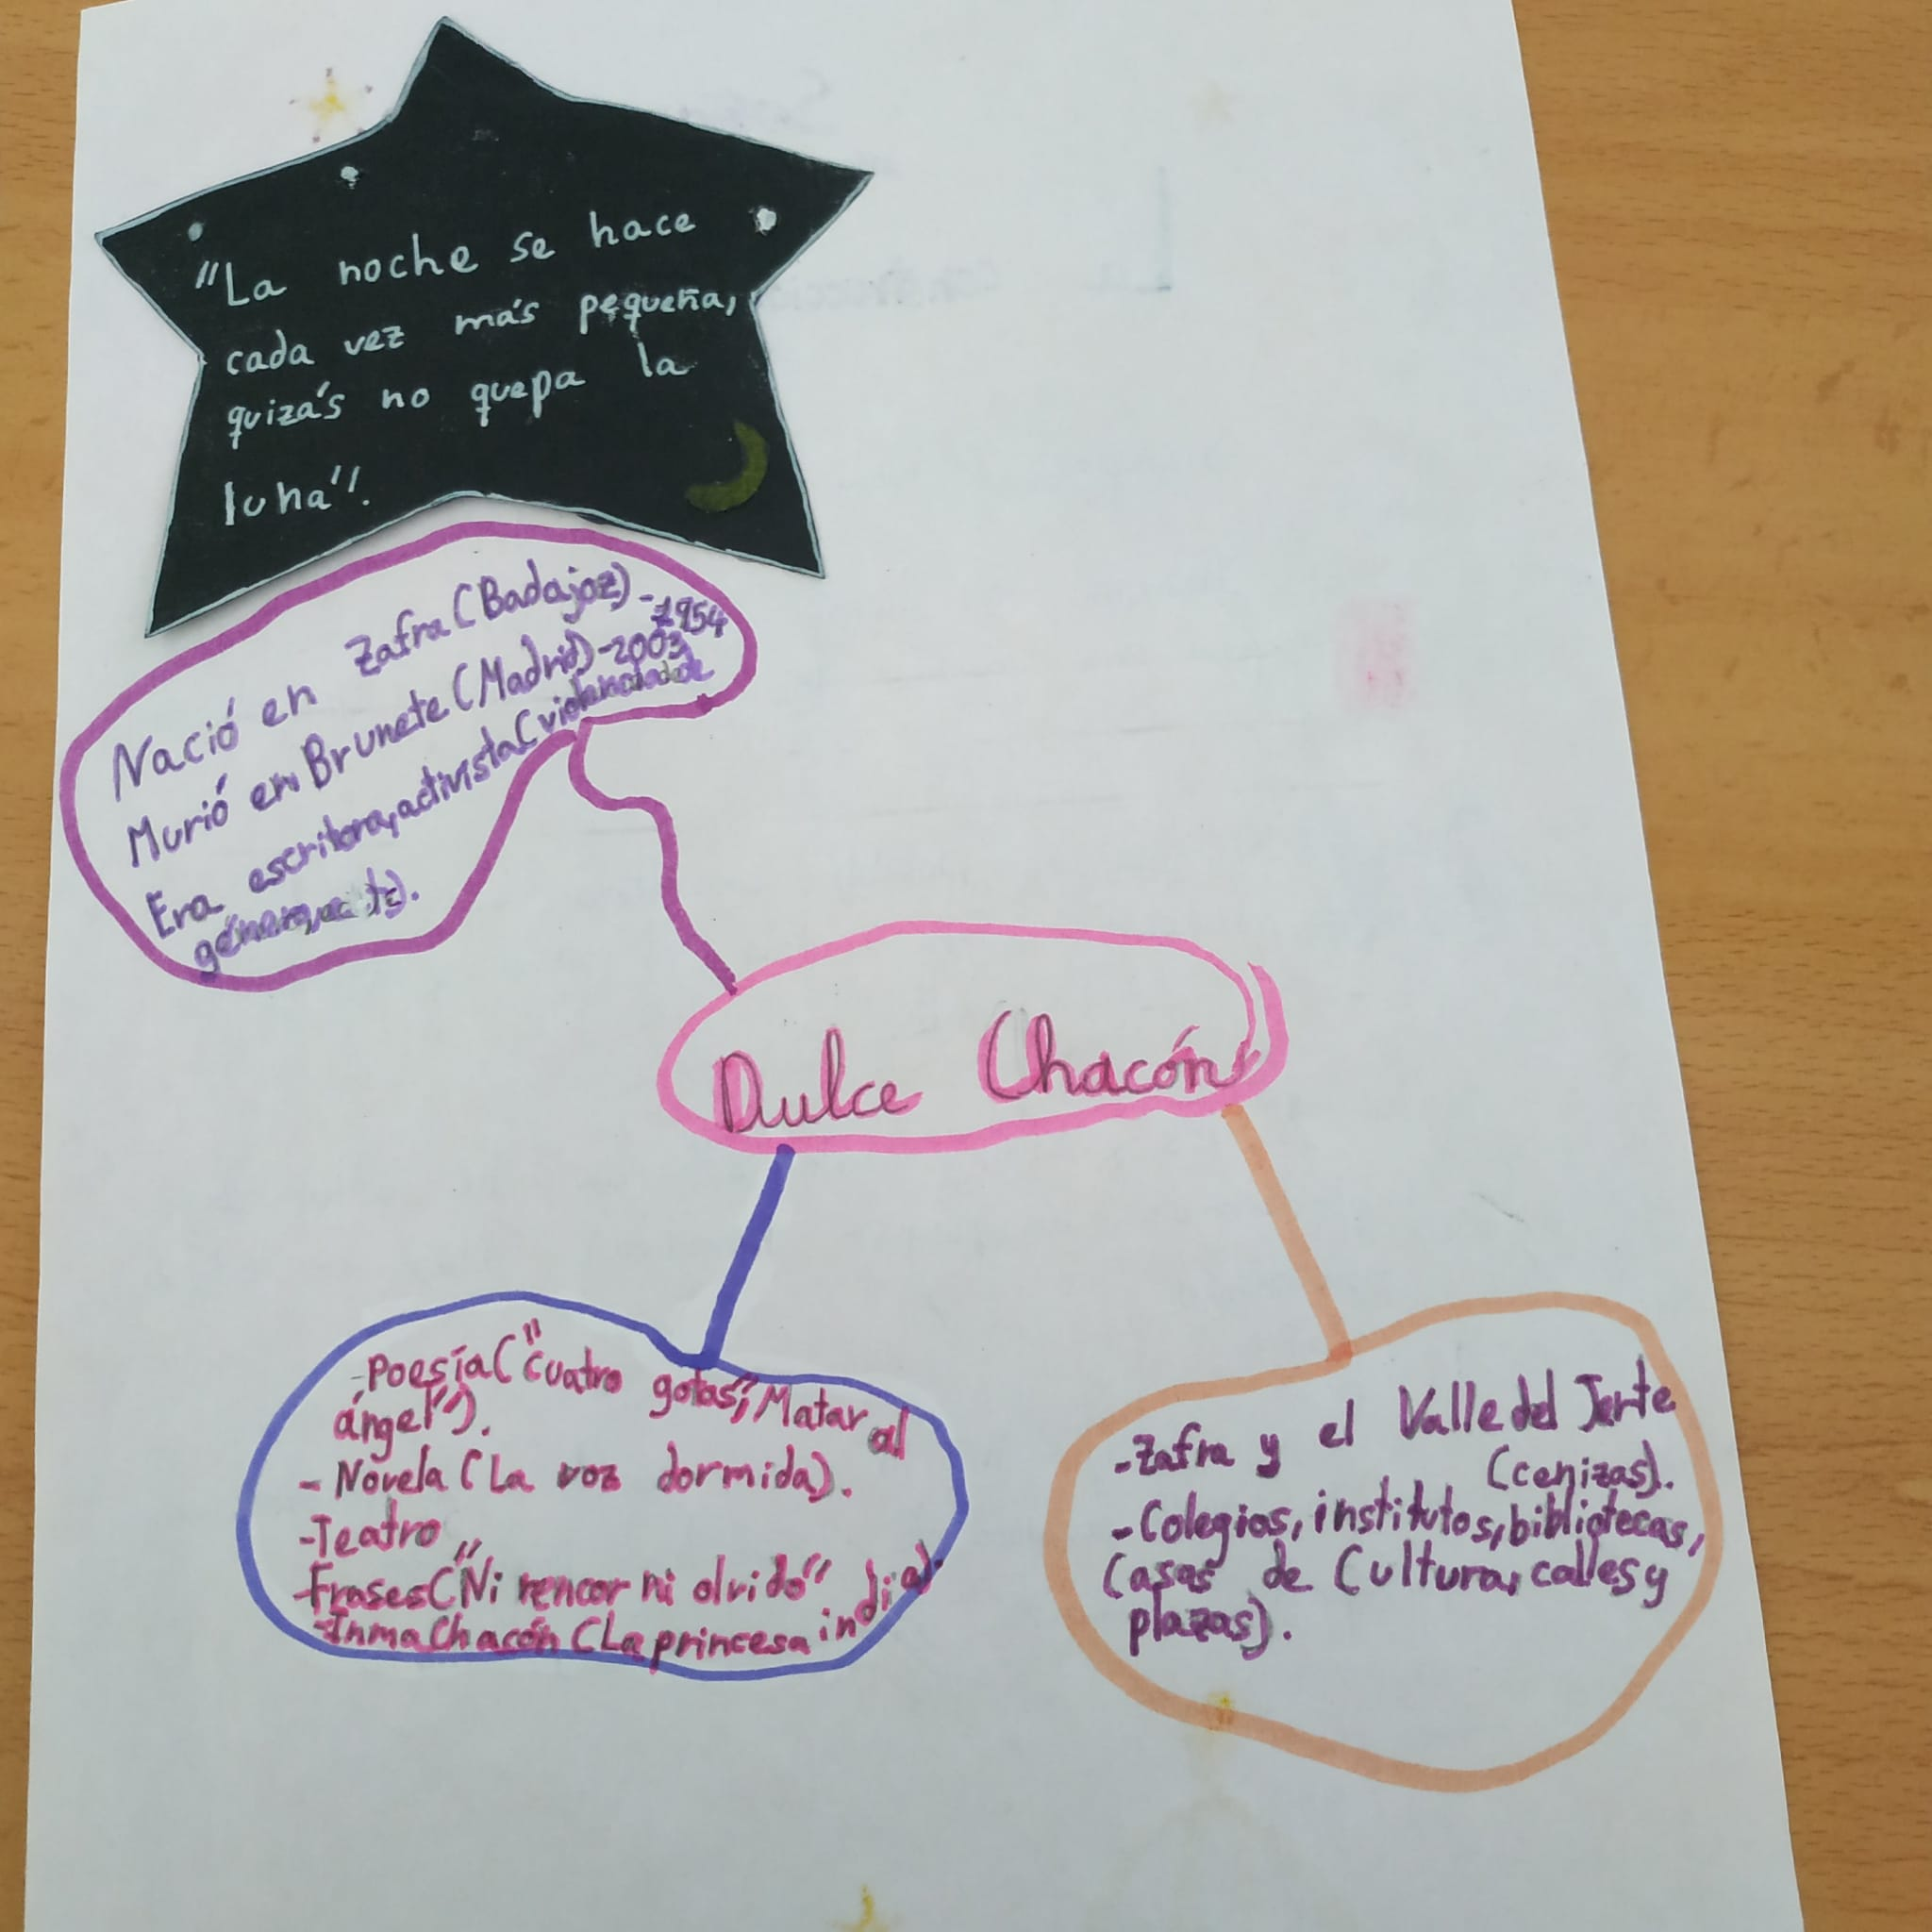 "La noche se hace
cada vez más pequeña,
quizás no quepa la
luna".
Nació en Zafra (Badajoz) - 1954
Murió en Brunete (Madrid) - 2003
Era escritora, activista (violencia de
género,
Dulce Chacón
-Poesía ("Cuatro gotas", Matar al
ángel").
- Novela (La voz dormida).
-Teatro
-Frases ("Ni rencor ni olvido"
-Inma Chacón (La princesa india)
-Zafra y el Valle del Jerte
(cenizas).
-Colegios, institutos, bibliotecas,
Casas de Cultura, calles y
plazas).